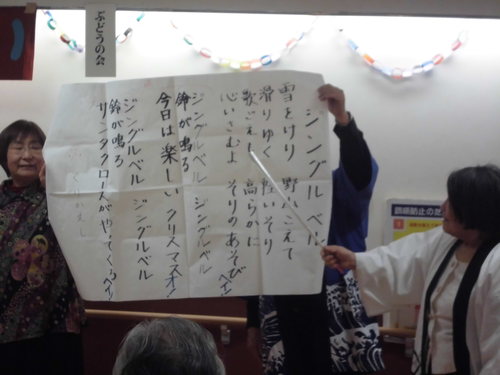 ぶどうの会
ジングル ベル
雪をけり 野山こえて
滑りゆく 軽いそり
歌ごえも 高らかに
心いさむよ そりのあそび ヘイ!
ジングルベル ジングルベル
鈴が鳴る
今日は楽しい クリスマス オ!
ジングルベル ジングルベル
鈴が鳴る
サンタクロースがやってくる ヘイ!
くりかえし
防止の